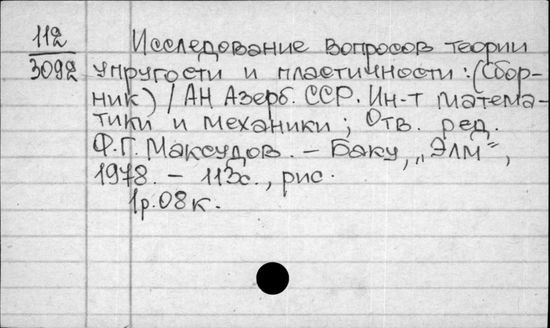 112 Исследование вопросов теории
3092 упругости и пластичности: (Сбор-
ник) / АН Азерб. ССР. Ин-т матема-
тики и механики; Отв. ред.
Ф.Г. Максудов. – Баку, „Элм",
1978. – 113с., рис.
1р.08к.